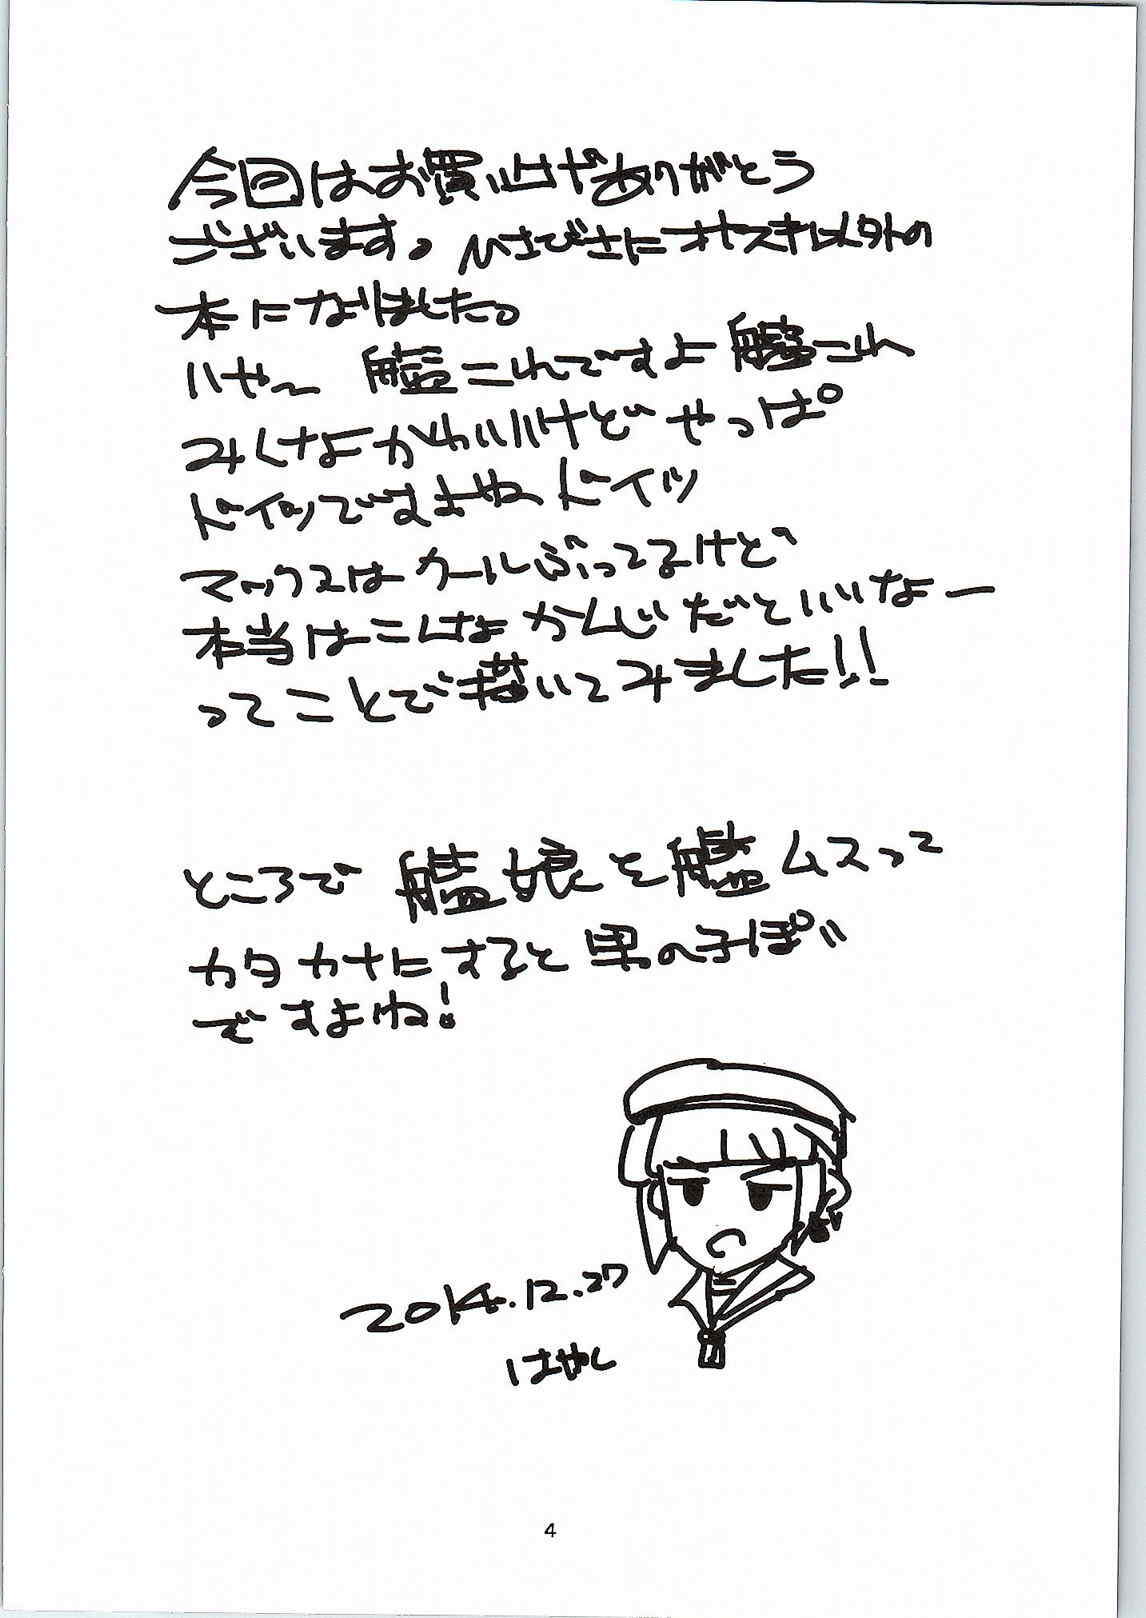 今回はお買い上げありがとう
ございます。ひさびさにオヤスキ以外の
本になりました。
いや〜 艦これですよ艦これ
みんなかわいいけど やっぱ
ドイツですよね ドイツ
マックスはクールぶってるけど
本当はこんなかんじだといいなー
ってことで描いてみました!!
ところで 艦娘を艦ムスって
カタカナにすると男の子ぽい
ですよね!
2014.12.27
はやし
4